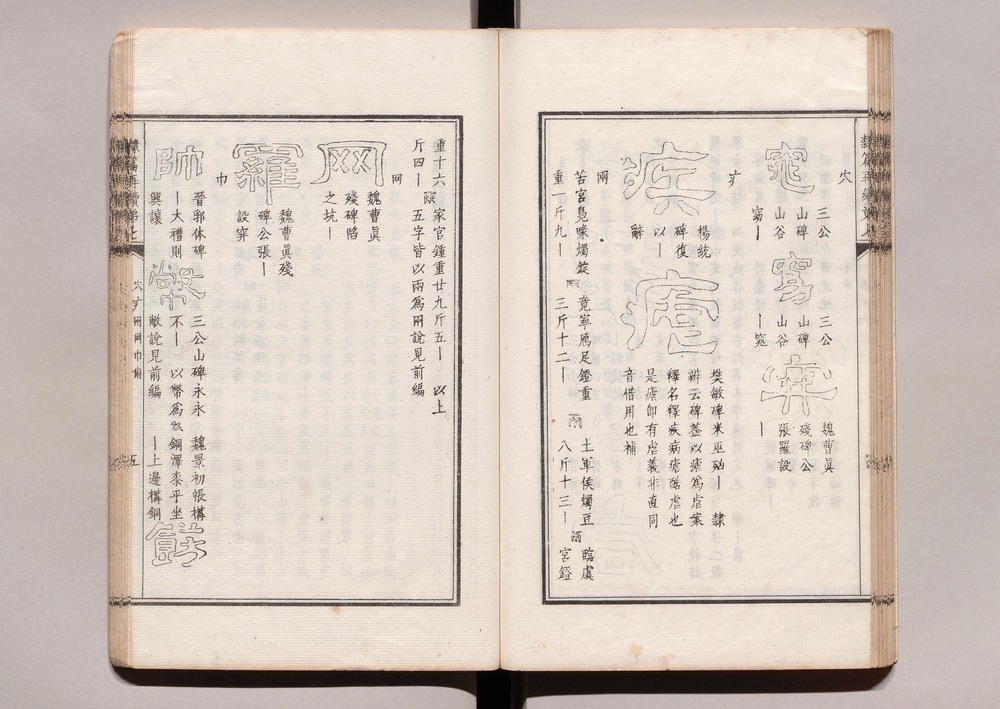 穴
窕
三公
山碑
山谷
窈｜
窈
三公
山碑
山谷
｜窕
穽
魏曹眞
殘碑公
張羅設
｜
疒
疾
楊統
碑復
以｜
辭
瘧
樊敏碑米巫㐫｜隸
辨云碑蓋以瘧爲虐案
釋名釋疾病瘧酷虐也
是瘧卽有虐義非直同
音借用也補
㒳
苦宮鳧喙燭錠
重一斤九｜
竟寧鴈足鐙重
三斤十二｜
土軍侯燭豆
八斤十三｜
臨虞
宮鐙
重十六
斤四｜
家官鍾重廿九斤五｜以上
五字皆以兩爲㒳說見前編
网
网
魏曹眞
殘碑陷
之坑｜
羅
魏曹眞殘
碑公張｜
設穽
巾
帥
晉郛休碑
｜大禮則
興讓
幣
三公山碑永永
不｜以幣爲
敝說見前編
魏景初帳構
銅澤桼平坐
｜上邊構銅
飾
隸篇再續第七
穴疒㒳网巾
五